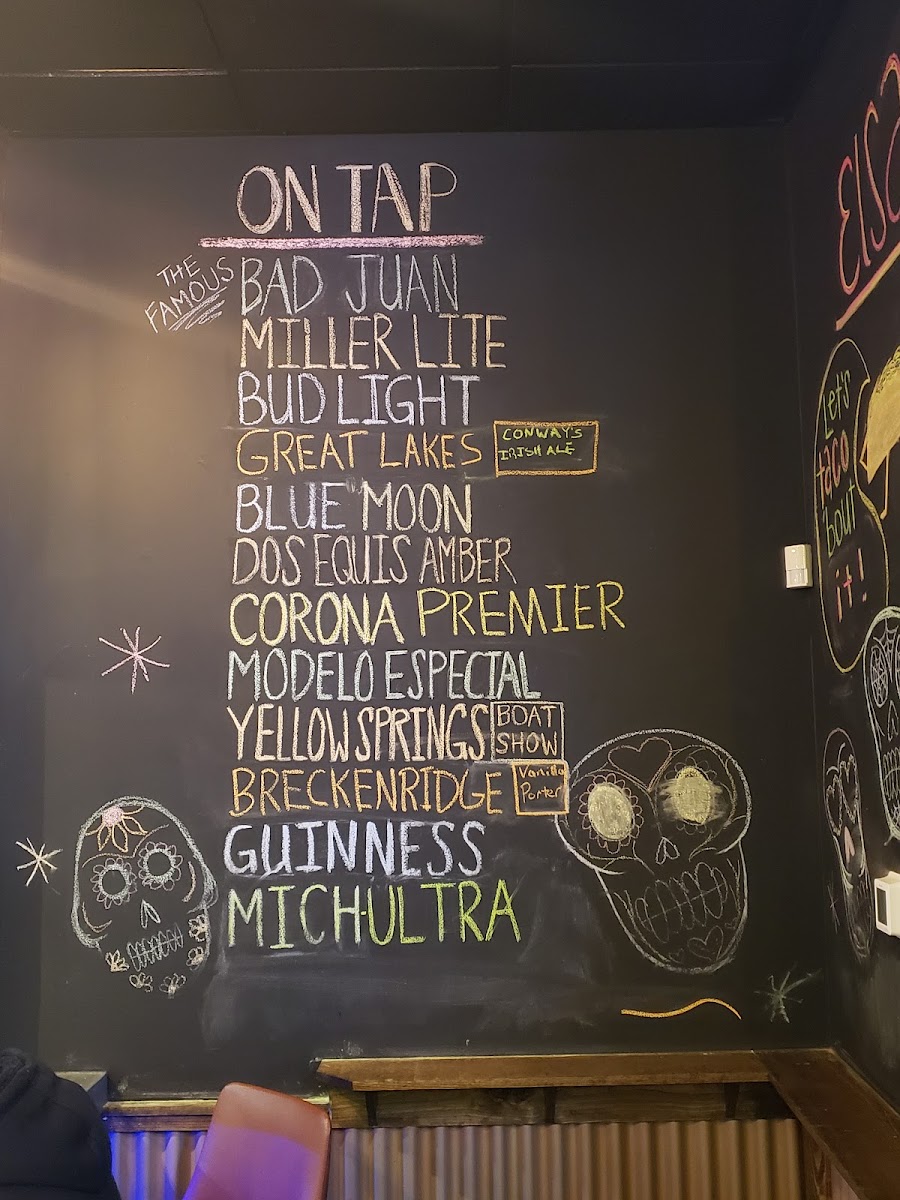 ON TAP
THE FAMOUS BAD JUAN
MILLER LITE
BUD LIGHT
GREAT LAKES CONWAY'S IRISH ALE
BLUE MOON
DOS EQUIS AMBER
CORONA PREMIER
MODELO ESPECIAL
YELLOW SPRINGS BOAT SHOW
BRECKENRIDGE Vanilla Porter
GUINNESS
MICH-ULTRA
Let's
taco
'bout
it!